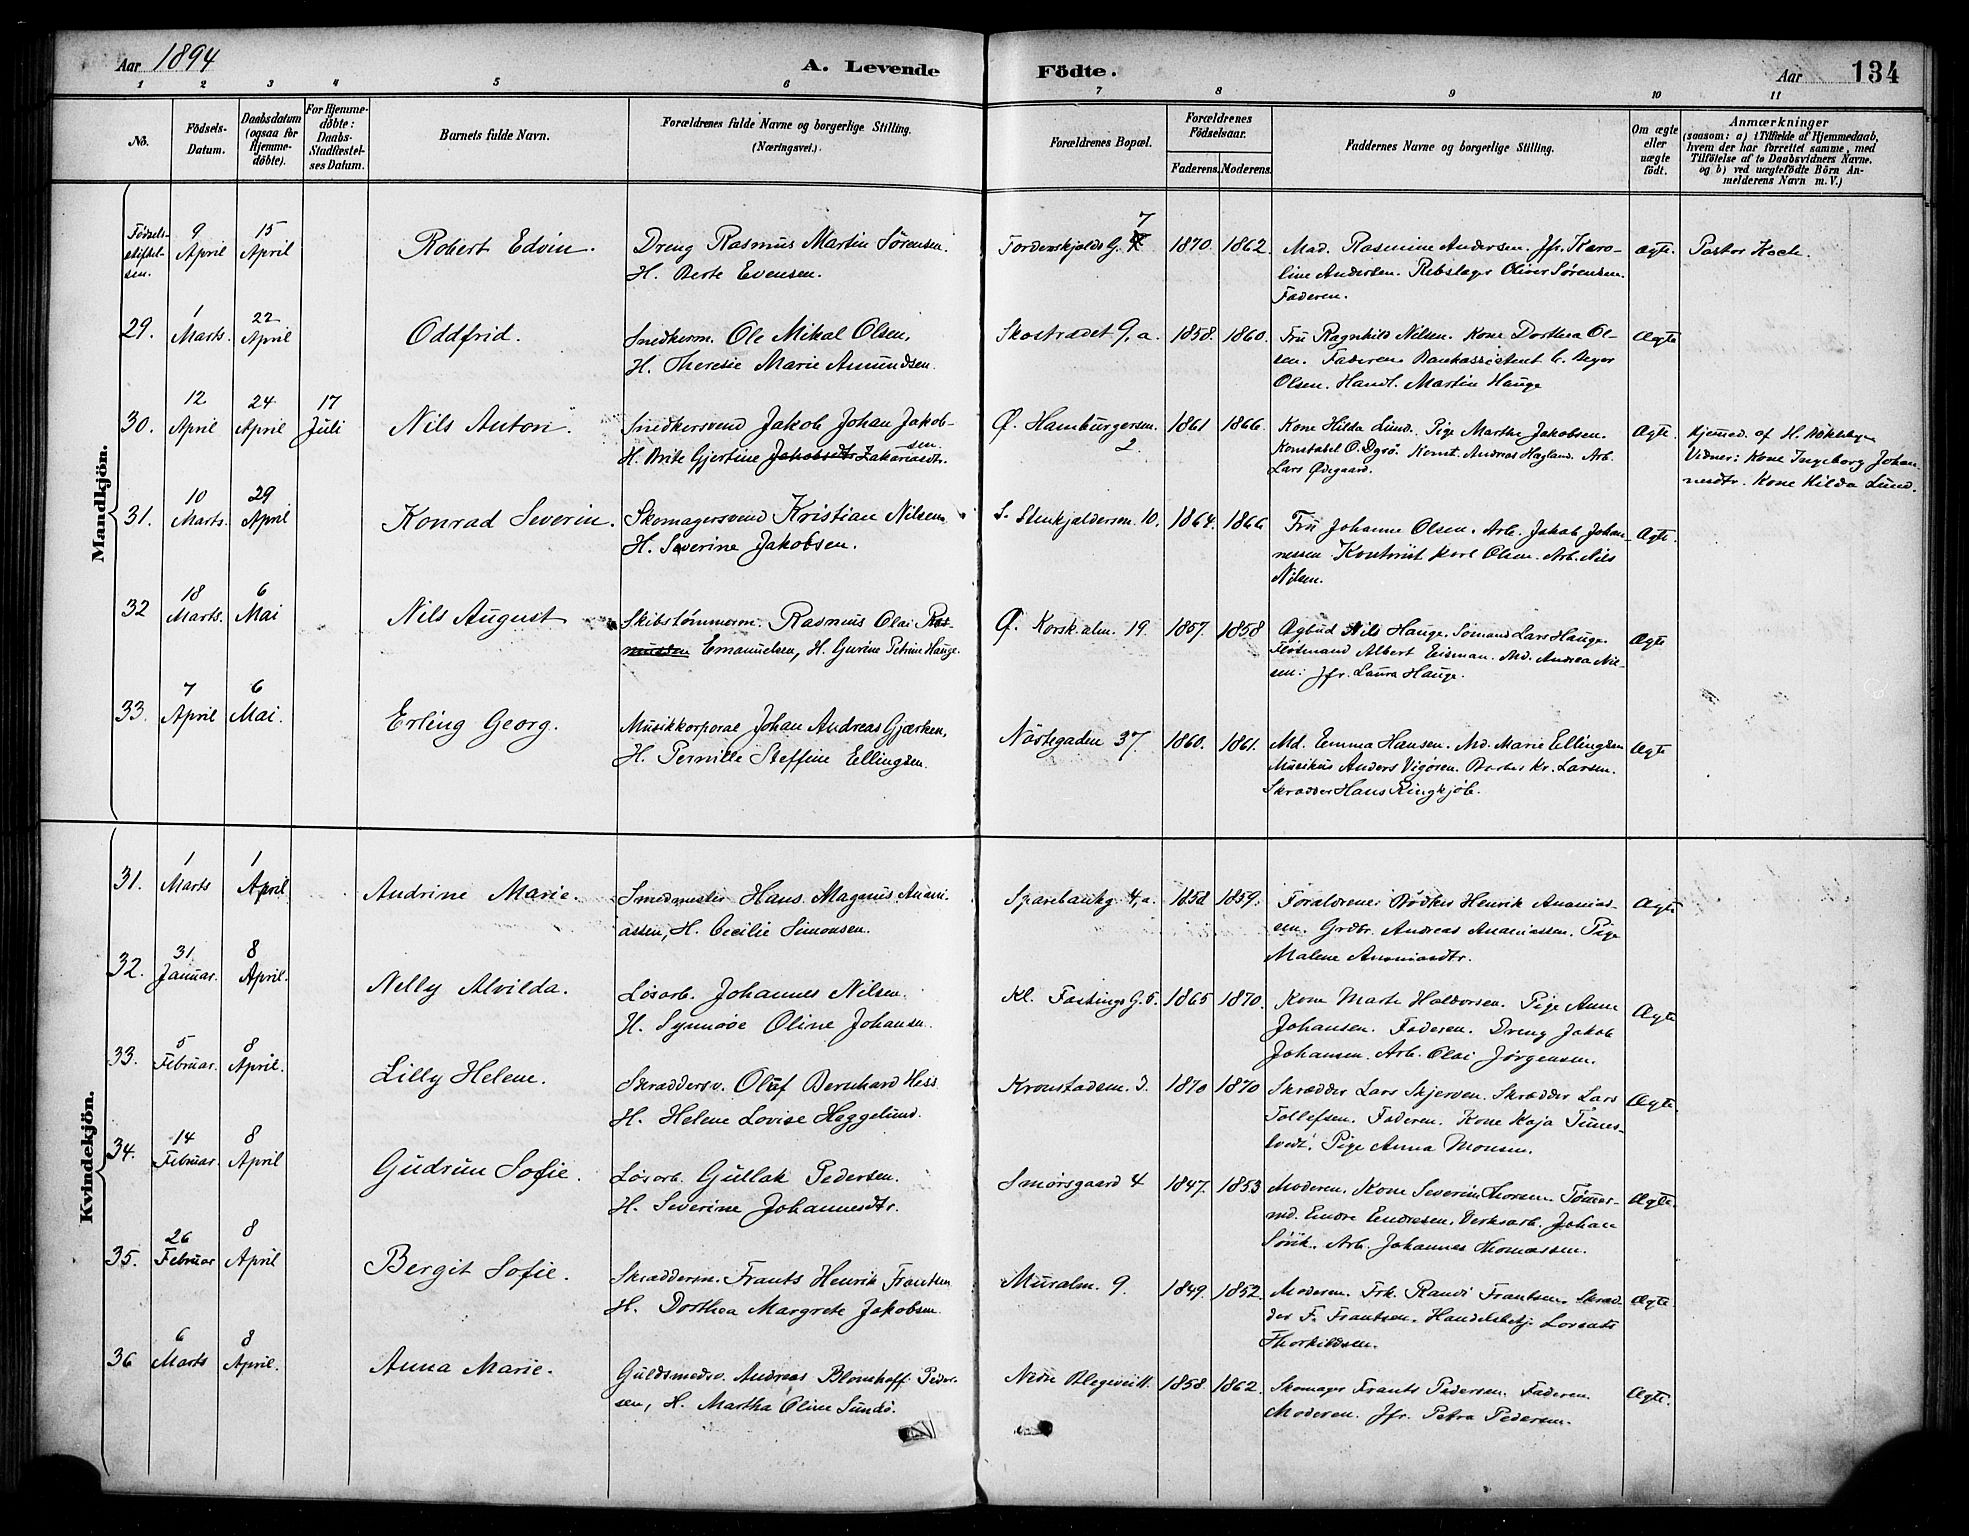 Aar 1894
A. Levende
Födte.
Aar
134
1 2 3 4 5 6 7 8 9 10 11
No.
Födsels-
Datum.
Daabsdatum
(ogsaa for
Hjemme-
döbte).
For Hjemme-
döbte:
Daabs-
Stadfæstel-
ses Datum.
Barnets fulde Navn.
Forældrenes fulde Navne og borgerlige Stilling.
(Næringsvei.)
Forældrenes Bopæl.
Forældrenes
Födselsaar.
Faderens. Moderens.
Faddernes Navne og borgerlige Stilling.
Om ægte
eller
uægte
födt.
Anmærkninger
(saasom: a) i Tilfælde af Hjemmedaab,
hvem der har forrettet samme, med
Tilföielse af to Daabsvidners Navne.
og b) ved uægtefödte Börn An-
melderens Navn m. V.)
Mandkjön.
Fødsels-
stiftel-
sen.
9
April
15
April
Robert Edvin.
Dreng Rasmus Martin Sørensen.
H. Berte Evensen.
Tordenskjolds G. 7
1870. 1862.
Mad. Rasmine Andersen. Jfr. Karo-
line Andersen. Rebslager Oliver Sørensen.
Faderen.
ægte.
Pastor Koch.
29.
1
Marts.
22
April
Oddfrid.
Snedkerm. Ole Mikal Olsen,
H. Theresie Marie Amundsen.
Skostrædet 9, a.
1858. 1860.
Fru Ragnhild Nilsen. Kone Dorthea Ol-
sen. Faderen. Bankassistent C. Meyer
Olsen. Handl. Martin Hauge
Ægte
30.
12
April
24
April
17
Juli
Nils Anton.
Snedkersvend Jakob Johan Jakob-
sen.
H. Brite Gjertine Jakobsdtr Zakariasdtr.
Ø. Hamburgersm.
2.
1861 1866.
Kone Hilda Lund. Pige Marthe Jakobsen.
Konstabel O. Dyrø. Konst. Andreas Hagland. Arb.
Lars Ødegaard.
Ægte.
Hjemmed. af H.
Vidner: Kone Ingeborg Johan-
nesdtr. Kone Hilda Lund.
31.
10
Marts.
29
April
Konrad Severin.
Skomagersvend Kristian Nilsen,
H. Severine Jakobsen.
S. Stenkjeldersm. 10.
1864. 1866
Fru Johanne Olsen. Arb. Jakob Johan-
nessen. Kontorist Karl Olsen. Arb. Nils
Nilsen.
Ægte.
32
18
Marts.
6
Mai
Nils August
Skibstømmerm. Rasmus Olai Ras-
mussen Emanuelsen, H. Gurine Petrine Hauge.
Ø. Korsk.alm. 19.
1857. 1858
Nils Hauge. Sømand Lars Hauge.
Albert Eisman. Md. Andrea Nil-
sen. Jfr. Laura Hauge.
Ægte
33.
7
April
6
Mai.
Erling Georg.
Musikkorporal Johan Andreas Gjerken,
H. Pernille Steffine Ellingsen.
Nøstegaden 37.
1860. 1861.
Md. Emma Hansen. Md. Marie Ellingsen
Musikus Anders Vigøren. Barber Kr. Larsen.
Skrædder Hans Ringkjøb.
Ægte
Kvindekjön.
31.
1
Marts
1
April
Andrine Marie.
Smedmester Hans Magnus Anani-
assen, H. Cecilie Simonsen.
Sparebankg. 4, a.
1858 1859.
Forældrene. Bødker Henrik Ananias-
sen. Grdbr. Andreas Ananiassen. Pige
Malene Ananiasdtr.
Ægte
32.
31
Januar.
8
April.
Nelly Alvilda.
Løsarb. Johannes Nilsen.
H. Synnøve Oline Johansen.
Kl. Fastings G. 5.
1865 1870.
Kone Marte Haldorsen. Pige Anne
Johansen. Faderen. Dreng Jakob
Johansen. Arb. Olai Jørgensen.
Ægte
33.
5
Februar.
8
April.
Lilly Helene.
Skræddersv. Oluf Bernhard Hess
H. Helene Lovise Heggelund.
Kronstadsm. 3.
1870 1870
Skrædder Lars Skjerven. Skrædder Lars
Tollefsen. Faderen. Kone Kaja Tunes-
tvedt. Pige Anna Monsen.
Ægte
34.
14
Februar.
8
April
Gudrun Sofie.
Løsarb. Gullak Pedersen.
H. Severine Johannesdtr.
Smørsgaard 4
1847. 1853
Moderen. Kone Severine Thorsen. Tømmer-
md. Endre Endresen. Verksarb. Johan
Søvik. Arb. Johannes Thomassen.
Ægte.
35.
26
Februar
8
April
Bergit Sofie.
Skrædderm. Frants Henrik Frantsen
H. Dorthea Margrete Jakobsen.
Muralm. 9.
1849. 1852.
Moderen. Frk. Randi Frantsen. Skræd-
der F. Frantsen. Handelsbetj. Lorents
Thorkildsen.
Ægte.
36
6
Marts
8
April.
Anna Marie.
Guldsmedsv. Andreas Blomhoff Peder-
sen, H. Martha Oline Sundø.
Nedre Blegevei 11.
1858. 1862.
Skomager Frants Pedersen. Faderen.
Moderen. Jfr. Petra Pedersen.
Ægte.